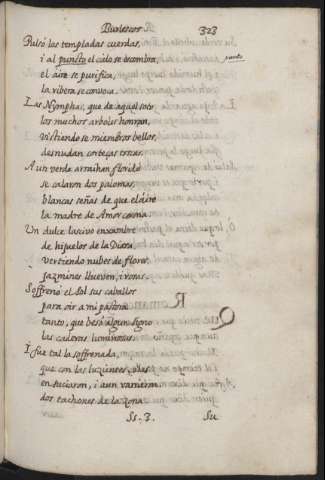 Burlescos
323
Pulsó las templadas cuerdas,
i al punsto el cielo se escombra,
punto
el aire se purifica,
la ribera se convoca.
Las Nymphas, que de aquel soto
los muchos arboles honran,
vistiendo se miembros bellos,
desnudan corteças toscas.
A un verde arraihan florido
se calaron dos palomas,
blancas señas de que el aire
la madre de Amor corona.
Un dulce lascivo enxambre
de hijuelos de la Diosa,
vertiendo nubes de flores,
jazmines llueven, i rosas.
Soffrenó el Sol sus caballos
para oir a mi pastora
tanto, que besó algun signo
las caderas luminosas.
I fue tal la soffrenada,
que con las luzientes, ollas
ensuciaron, i aun varrieron
dos tachones de la zona.
Ss. 3.
Su